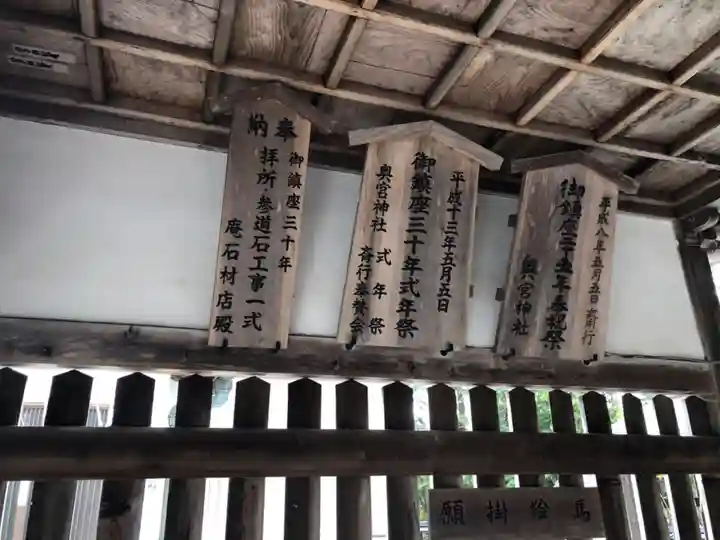 平成八年五月五日斎行
御鎮座二十五年奉祝祭
奥宮神社
平成十三年五月五日
御鎮座三十年式年祭
奥宮神社 式年祭
斉行奉賛会
奉納
御鎮座三十年
拝所・参道石工事一式
庵石材店殿
願掛絵馬